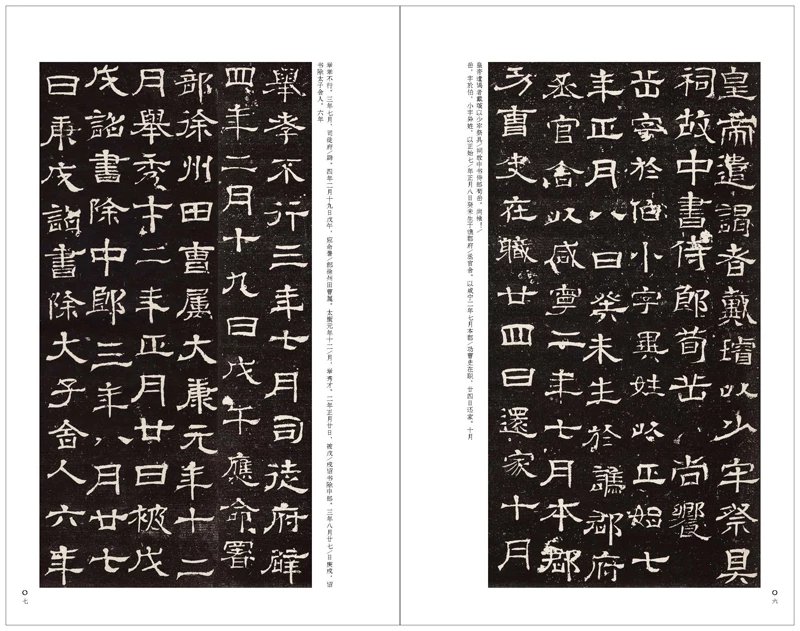 皇帝遣謁者戴璿以少牢祭具
祠故中書侍郎荀岳尚饗
岳字於伯小字異姓以正始七
年正月八日癸未生於譙郡府
丞官舍以咸寧二年七月本郡
功曹史在職廿四日還家十月
皇帝遣谒者戴璿以少牢祭具/祠故中书侍郎荀岳。尚飨！/
岳，字於伯，小字异姓。以正始七/年正月八日癸未生于谯郡府/丞官舍。以咸宁二年七月本郡/功曹史在职，廿四日还家。十月
〇六
舉孝不行三年七月司徒府辟
四年二月十九日戊午應命署
部徐州田曹属大康元年十二
月舉秀才二年正月廿日被戊
戌詔書除中郎三年八月廿七
日庚戌詔書除大子舍人六年
举孝不行。三年七月，司徒府/辟。四年二月十九日戊午，应命署/部徐州田曹属。太康元年十二/月，举秀才。二年正月廿日，被戊/戌诏书除中郎。三年八月廿七/日庚戌，诏
书除太子舍人。六年
〇七